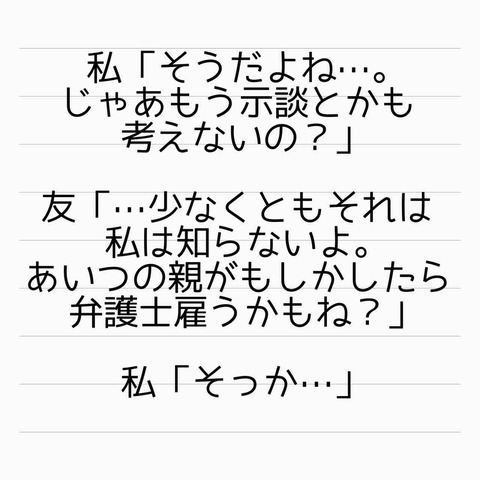 私「そうだよね…。
じゃあもう示談とかも
考えないの？」
友「…少なくともそれは
私は知らないよ。
あいつの親がもしかしたら
弁護士雇うかもね？」
私「そっか…」